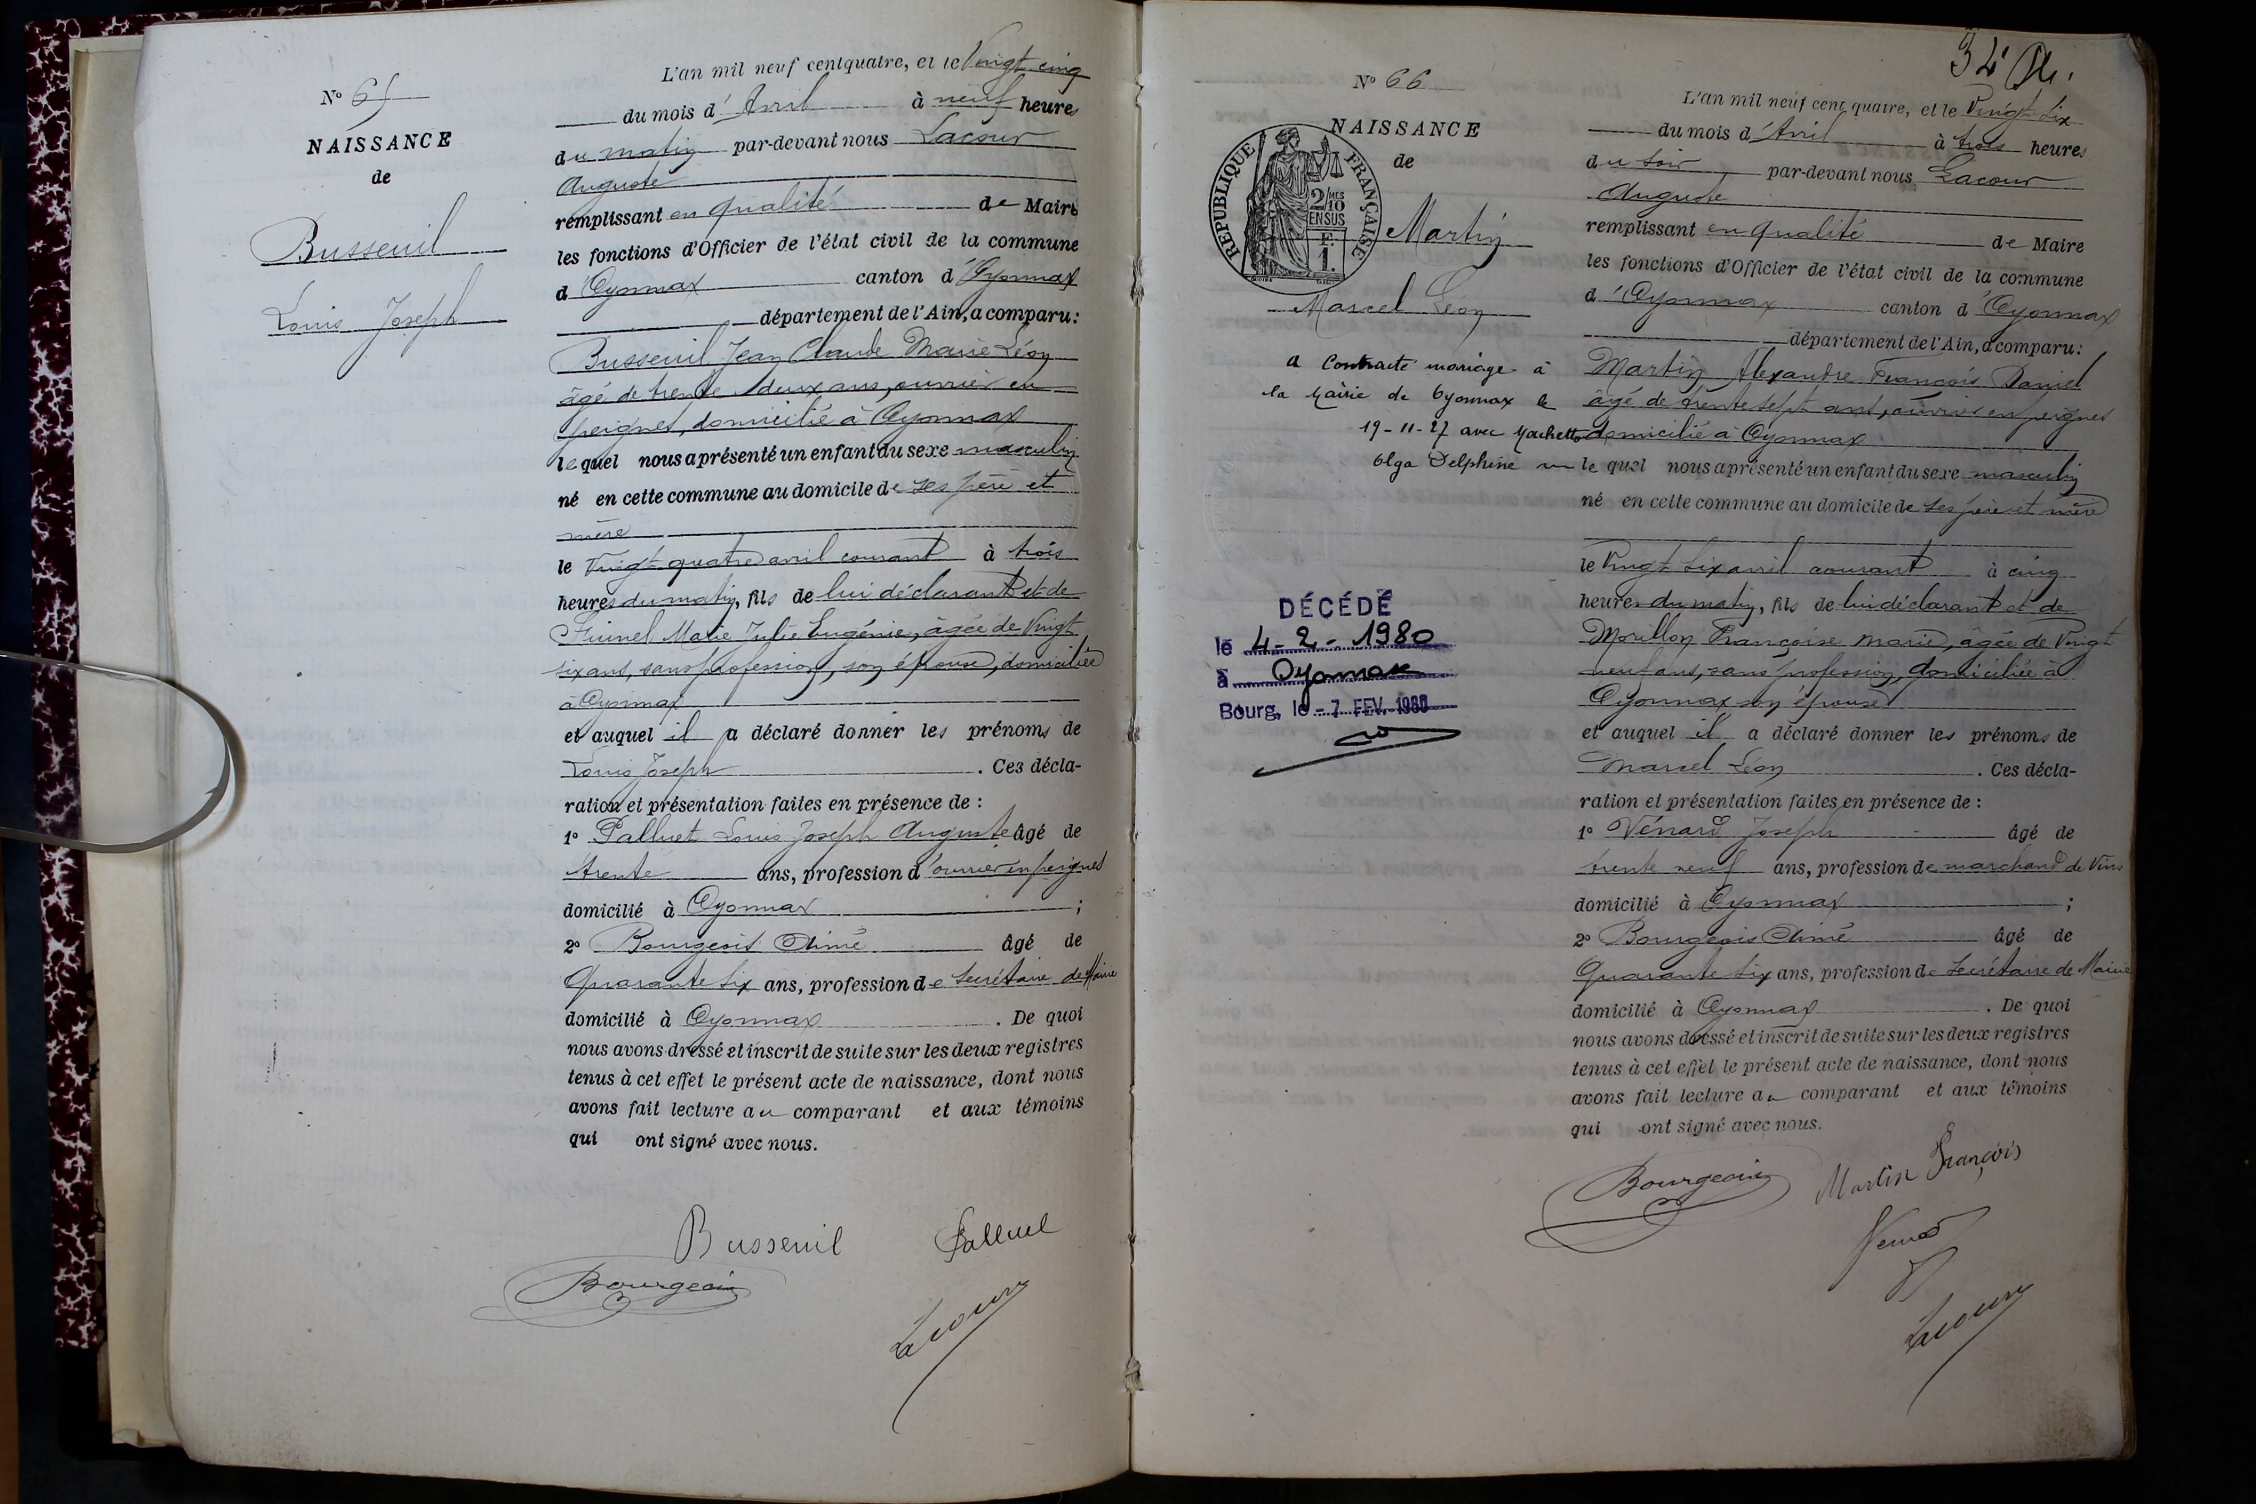 L'an mil neuf cent quatre, et le Vingt cinq
N° 65
du mois d'Avril à neuf heures
NAISSANCE
du matin par-devant nous Lacour
de
Auguste
remplissant en qualité de Maire
Busseuil
les fonctions d'Officier de l'état civil de la commune
d'Oyonnax canton d'Oyonnax
Louis Joseph
département de l'Ain, a comparu:
Busseuil Jean Claude Marie Léon
âgé de trente deux ans, ouvrier en
peignes, domicilié à Oyonnax
lequel nous a présenté un enfant du sexe masculin
né en cette commune au domicile de ses père et
mère
le Vingt quatre avril courant à trois
heures du matin, fils de lui déclarant et de
Marie Julie Eugénie, âgée de Vingt
six ans, sans profession, son épouse, domiciliée
à Oyonnax
et auquel il a déclaré donner les prénoms de
Louis Joseph. Ces décla-
ration et présentation faites en présence de :
1° Palluet Louis Joseph Auguste âgé de
trente ans, profession d'ouvrier en peignes
domicilié à Oyonnax ;
2° Bourgeois Aimé âgé de
Quarante six ans, profession de secrétaire de Mairie
domicilié à Oyonnax. De quoi
nous avons dressé et inscrit de suite sur les deux registres
tenus à cet effet le présent acte de naissance, dont nous
avons fait lecture au comparant et aux témoins
qui ont signé avec nous.
Busseuil Palluet
Bourgeois
Lacour
34
N° 66
L'an mil neuf cent quatre, et le Vingt Six
NAISSANCE
du mois d'Avril à trois heures
de
du soir par-devant nous Lacour
Auguste
REPUBLIQUE FRANÇAISE
2/10 MES
EN SUS
F.
1.
Martin
remplissant en qualité de Maire
les fonctions d'Officier de l'état civil de la commune
Marcel Léon
d'Oyonnax canton d'Oyonnax
département de l'Ain, a comparu:
a Contracté mariage à
la Mairie de Oyonnax le
19-11-27 avec Machetto
Olga Delphine
Martin Alexandre François Daniel
âgé de trente sept ans, ouvrier en peignes
domicilié à Oyonnax
lequel nous a présenté un enfant du sexe masculin
né en cette commune au domicile de ses père et mère
le Vingt Six avril courant à cinq
DÉCÉDÉ
le 4-2-1980
à Oyonnax
Bourg, le - 7 FEV. 1980
heures du matin, fils de lui déclarant et de
Morillon Françoise Marie, âgée de Vingt
neuf ans, sans profession, domiciliée à
Oyonnax son épouse
et auquel il a déclaré donner les prénoms de
Marcel Léon. Ces décla-
ration et présentation faites en présence de :
1° Vénard Joseph âgé de
trente neuf ans, profession de marchand de Vins
domicilié à Oyonnax ;
2° Bourgeois Aimé âgé de
Quarante Six ans, profession de secrétaire de Mairie
domicilié à Oyonnax. De quoi
nous avons dressé et inscrit de suite sur les deux registres
tenus à cet effet le présent acte de naissance, dont nous
avons fait lecture au comparant et aux témoins
qui ont signé avec nous.
Bourgeois Martin François
Venard
Lacour